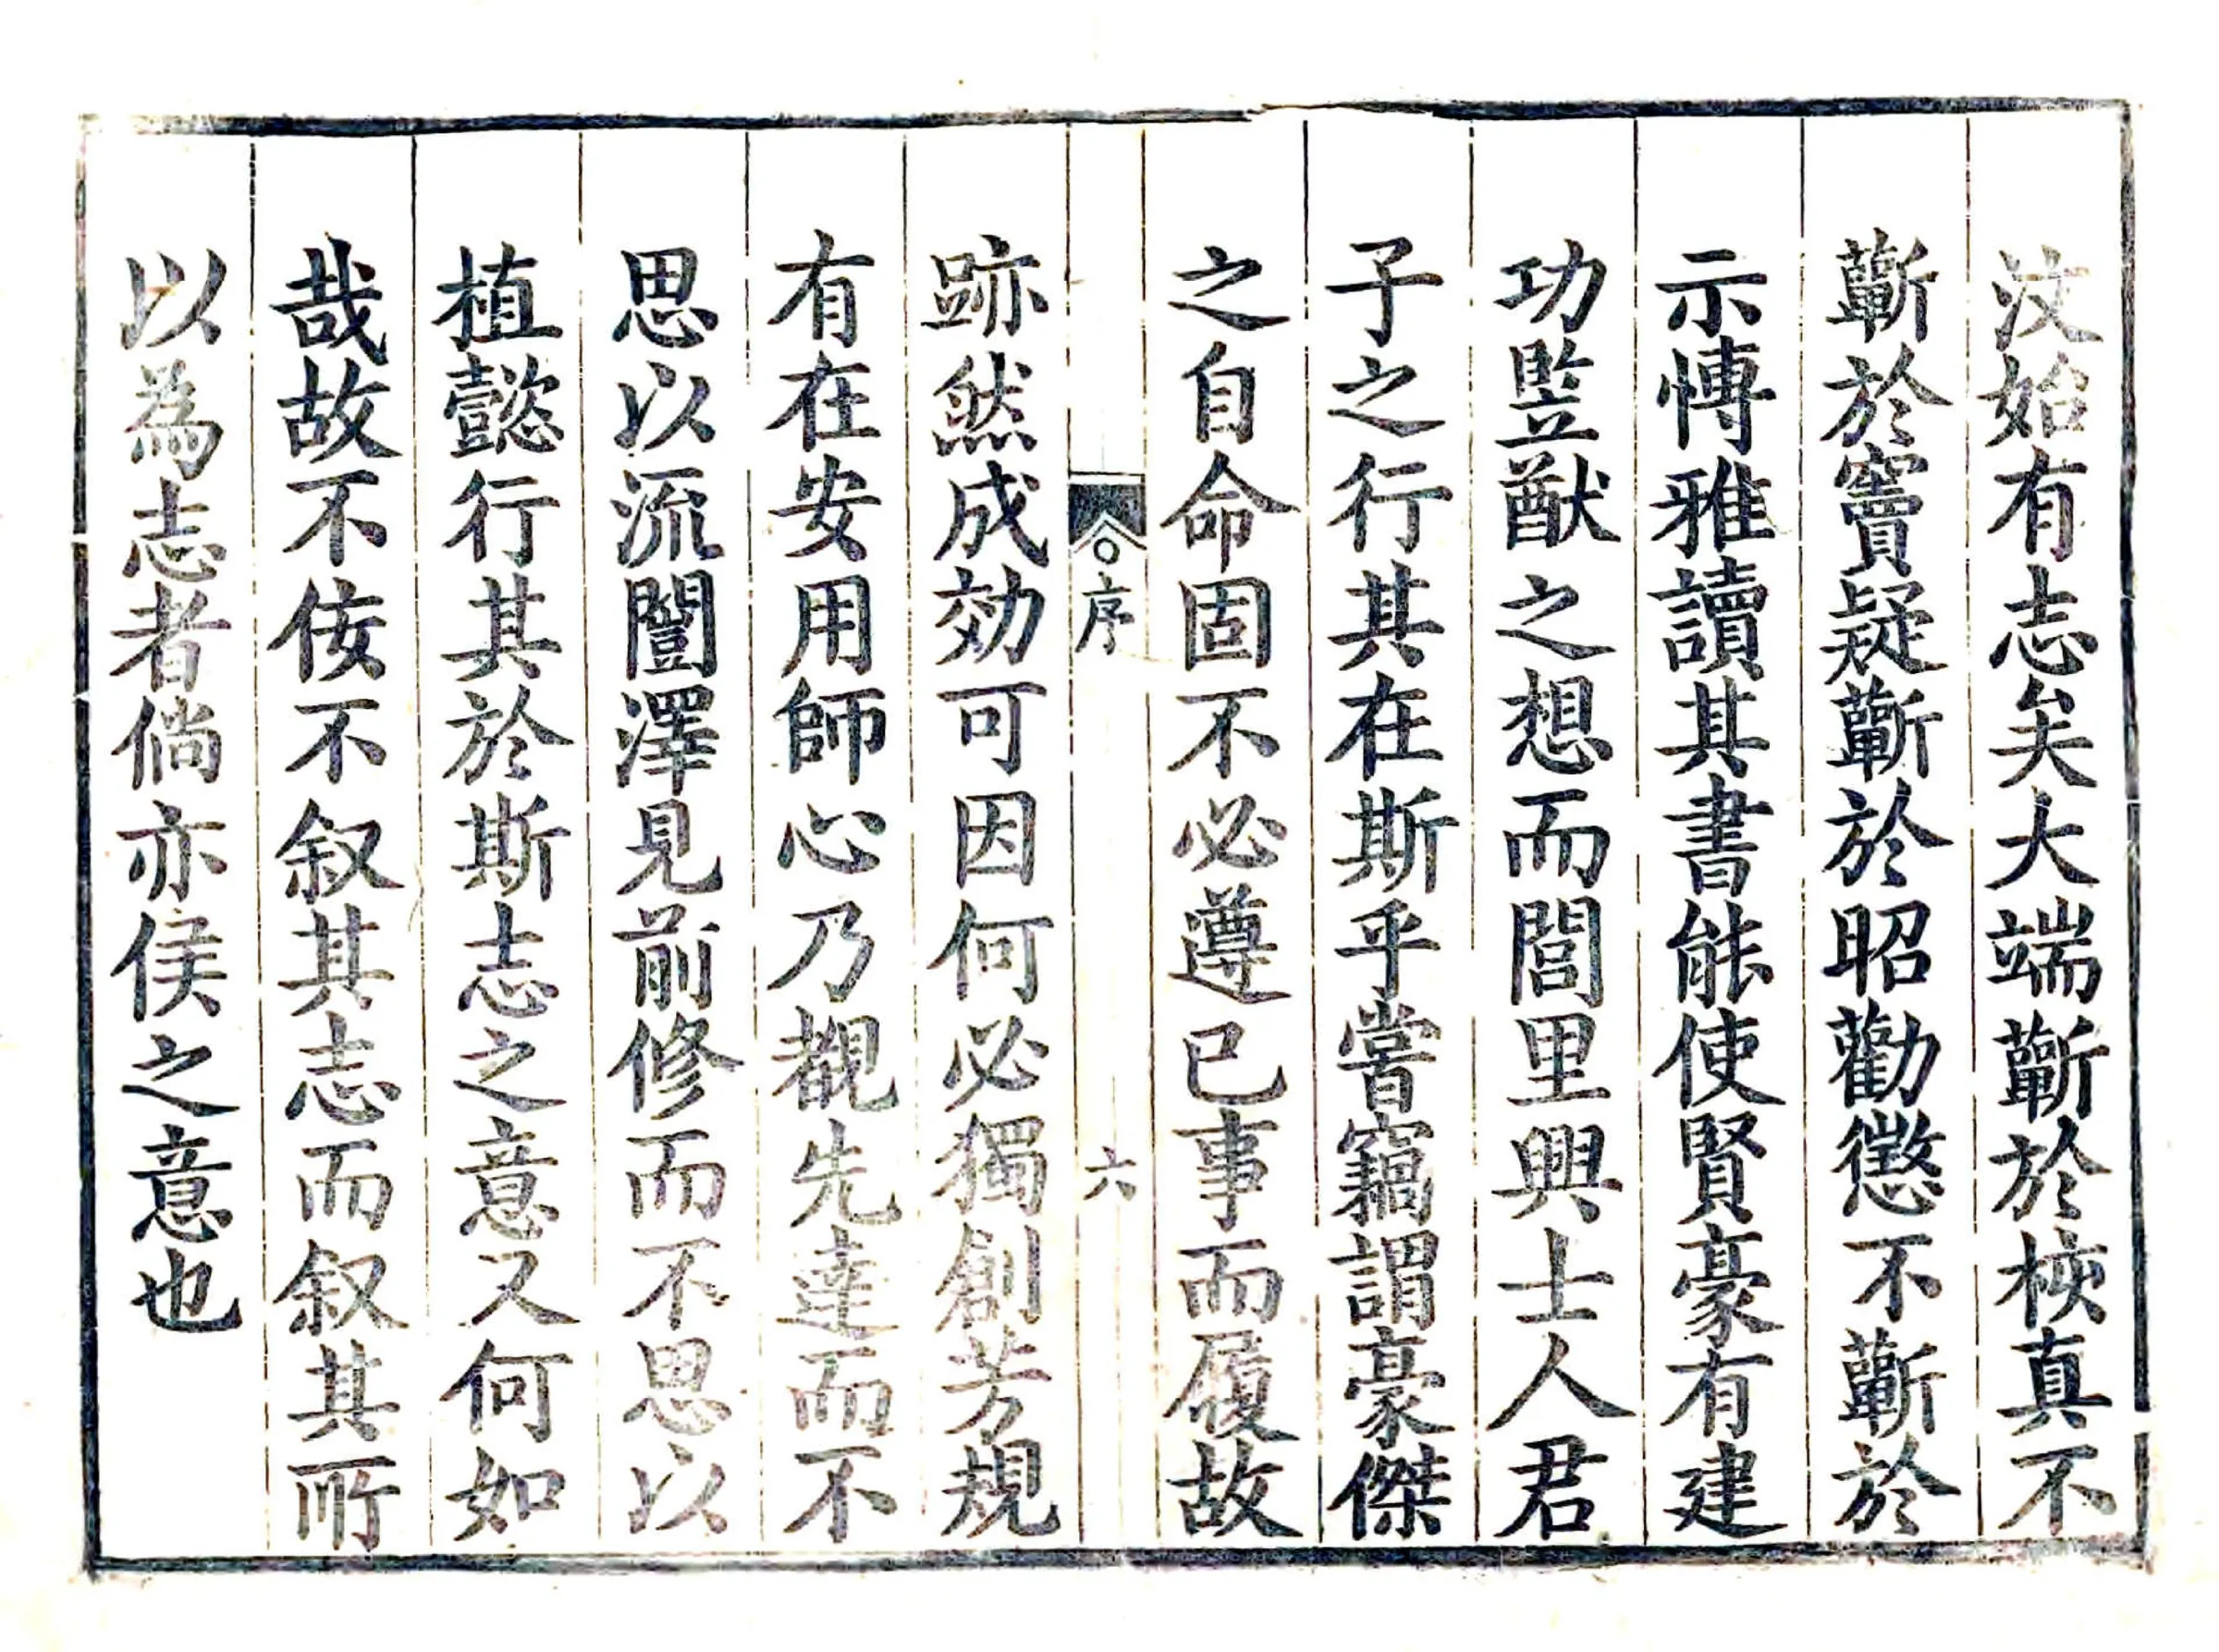 汶始有志矣大端蘄於核真不
蘄於竇疑蘄於昭勸懲不蘄於
示愽雅讀其書能使賢豪有建
功竪猷之想而閭里興士人君
子之行其在斯乎嘗竊謂豪傑
之自命固不必遵已事而履故
序
六
跡然成効可因何必獨創芳規
有在安用師心乃覩先達而不
思以流闓澤見前修而不思以
植懿行其於斯志之意又何如
哉故不佞不叙其志而叙其所
以為志者倘亦侯之意也